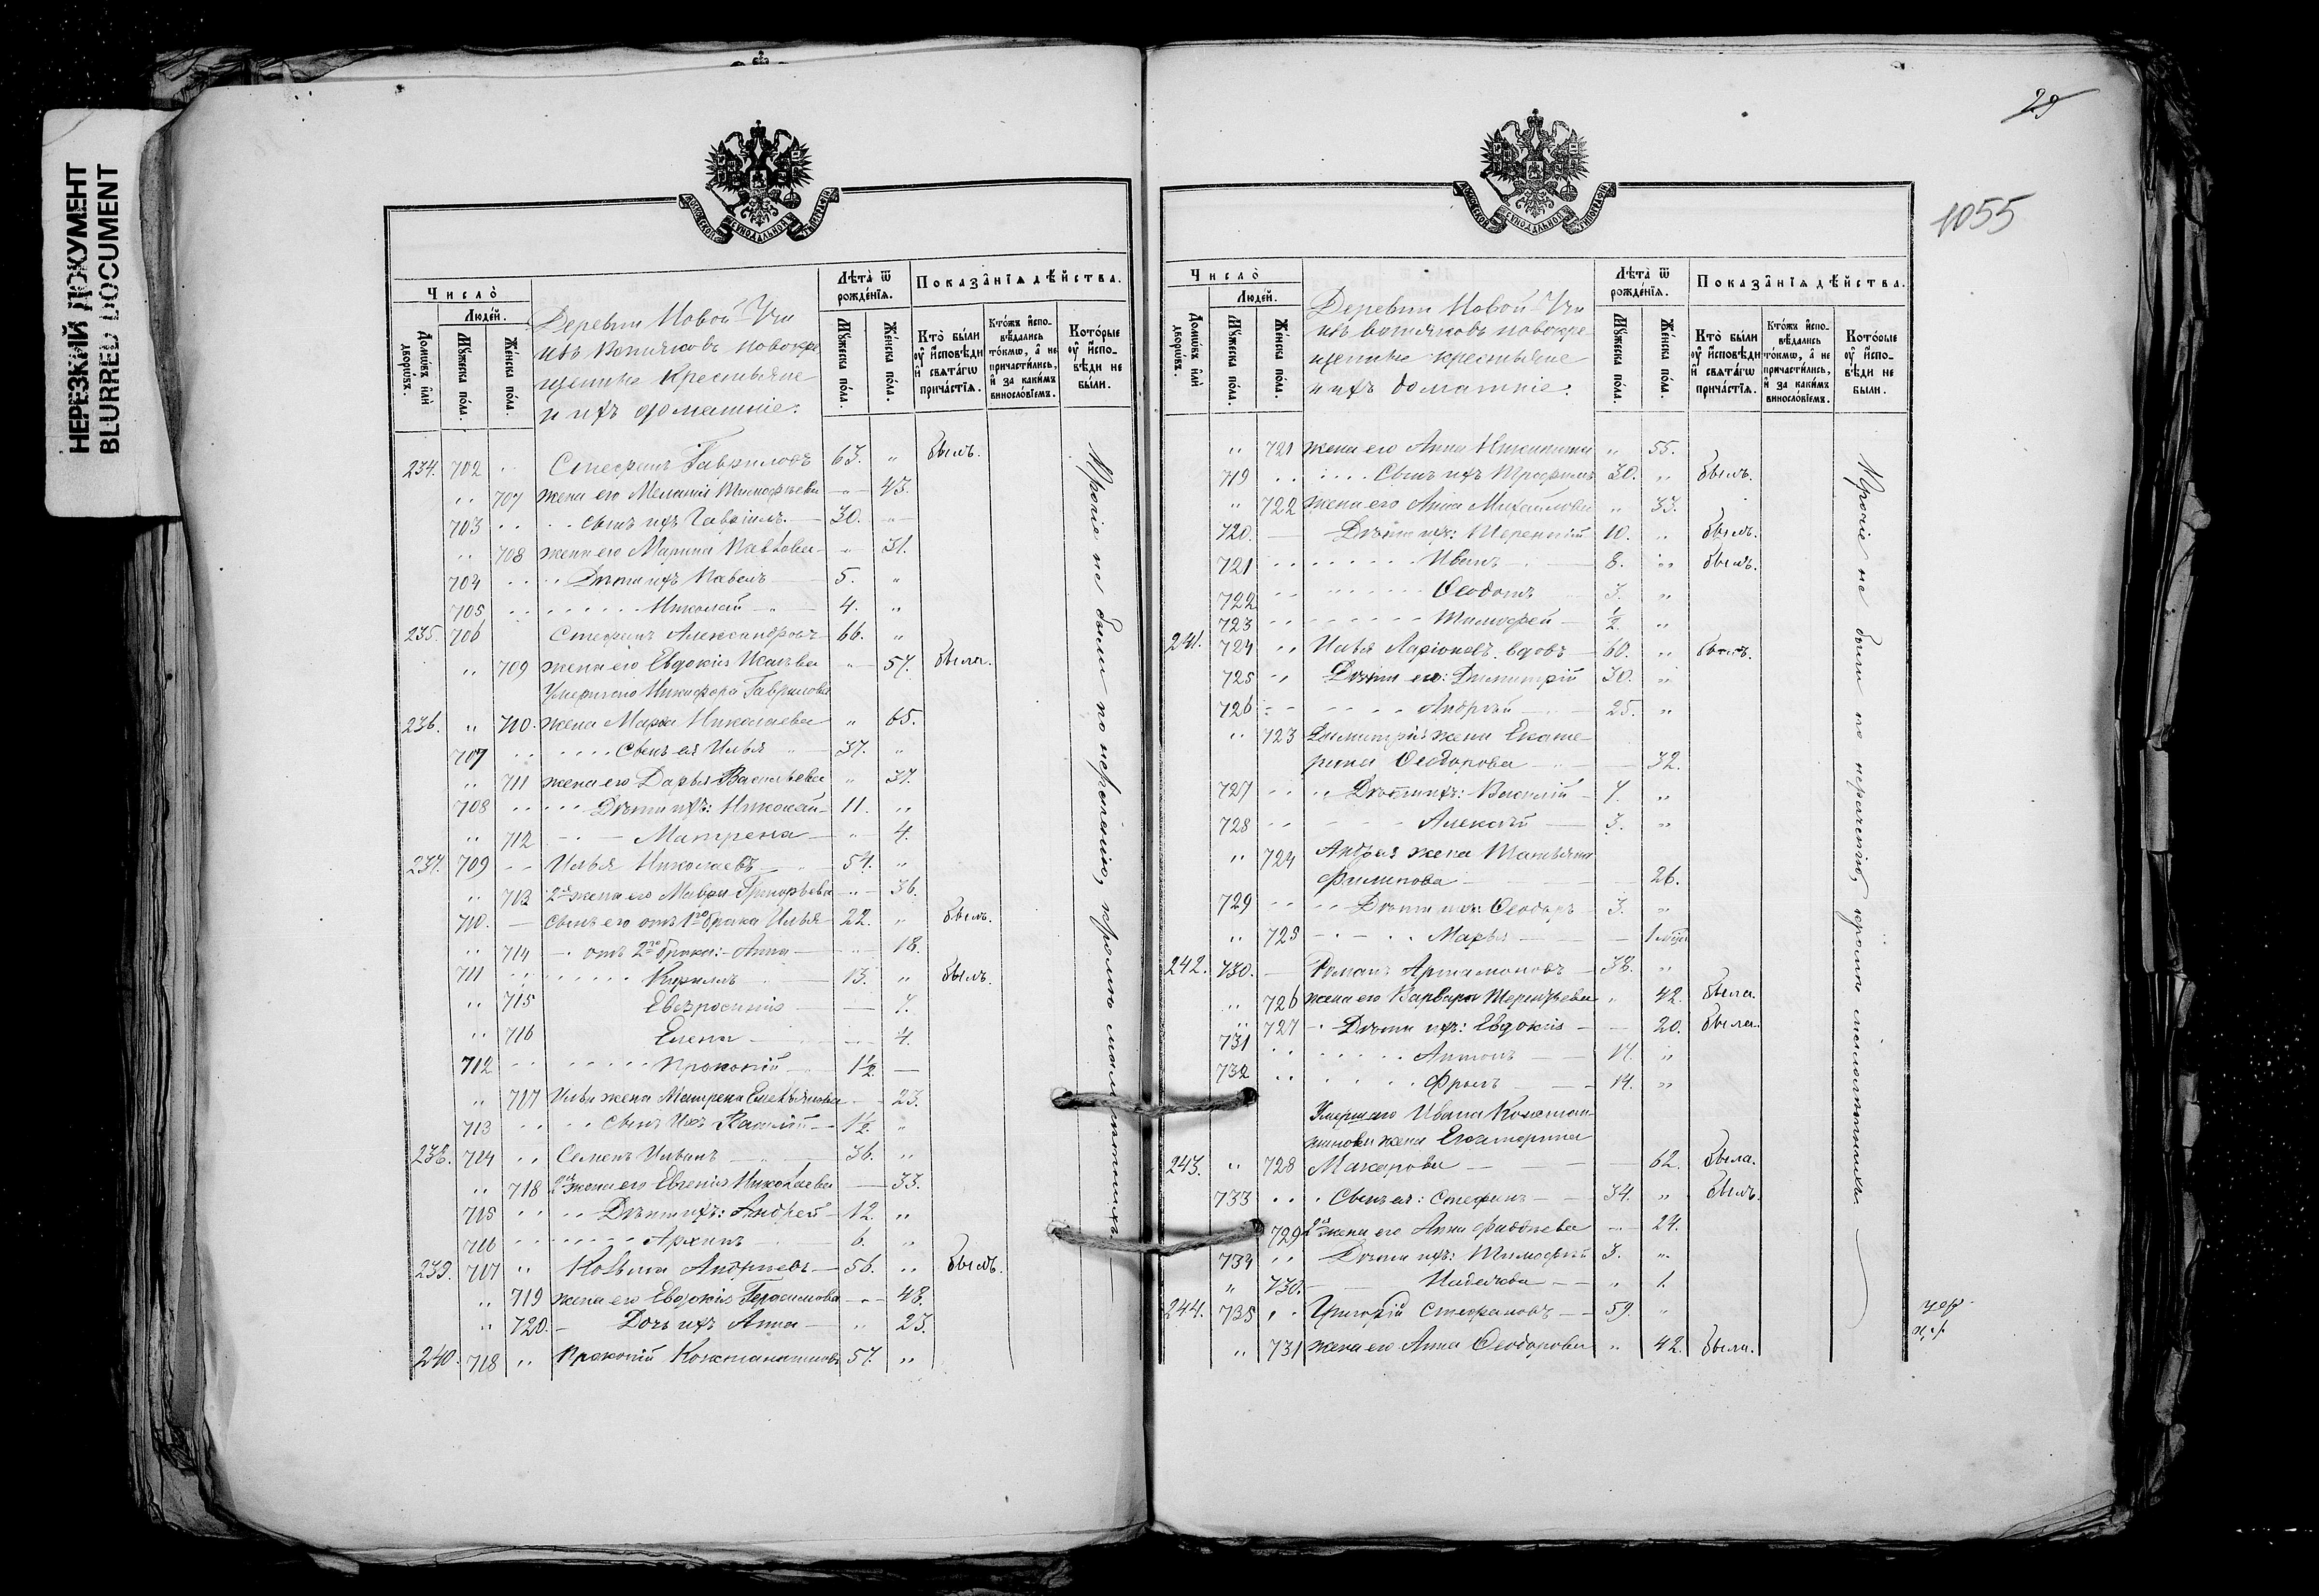 НЕРЕЗКИЙ ДОКУМЕНТ
BLURRED DOCUMENT
Число̀
Люде́й.
Домѡ́въ и҆лѝ дворѡ́въ.
Мꙋ́жеска по́ла.
Же́нска по́ла.
Деревни Новой Учи
изъ вотяковъ новокре
щенные крестьяне
и ихъ домашніе.
Лѣта̀ ѿ рожде́нїѧ.
Мꙋ́жеска по́ла.
Же́нска по́ла.
Показа̑нїѧ дѣ́йства.
Кто̀ бы́ли оу҆ и҆сповѣ́ди и҆ свѧта́гѡ прича́стїѧ.
Кто́жъ и҆спо-вѣ́дались то́кмѡ, а҆ не причасти́лись, и҆ за каки́мъ винословїемъ.
Кото́рые оу҆ и҆спо-вѣ́ди не бы́ли.
234. 702 Стефанъ Гавриловъ 63. " былъ.
" 707 жена его Меланія Тимофѣева " 43.
703 сынъ ихъ Гавріилъ 30. "
" 708 жена его Марина Павлова " 31.
704 Дѣти ихъ Павелъ 5. "
705 Николай 4. "
235. 706 Стефанъ Александровъ 66. "
" 709 жена его Евдокія " 57. была.
Умершаго Никифора Гаврилова
236. " 710. жена Марѳа Николаева " 65.
707 Сынъ ея Илья 37. "
" 711 жена его Дарья Васильева " 37.
708 Дѣти ихъ: Николай 11. "
" 712 Матрена " 4.
237. 709 Илья Николаевъ 54. "
" 713 2я жена его Мавра Григорьева " 36.
710. сынъ его отъ 1го брака Илья 22. " былъ.
" 714 отъ 2го брака: Анна 18.
711 Кириллъ 13. " былъ.
" 715 Евфросинія 7.
" 716 Елена 4.
712 Прокопій 1½
" 717 Ильи жена Матрена Емельянова 23.
713 сынъ ихъ Василій 1½ "
238. 714 " Семенъ Ильинъ 36. "
" 718 2я жена его Евгенія Николаева 33.
715 Дѣти ихъ: Андрей 12. "
716 Архипъ 6. "
239. 717 " Козьма Андреевъ 56. " былъ.
" 719 жена его Евдокія Герасимова 48.
" 720. Дочь ихъ Анна " 23.
240. 718 " Прокопій Константиновъ 57. "
Прочіе не были по нераченію, кромѣ малолѣтнихъ
29
1055
Число̀
Люде́й.
Домѡ́въ и҆лѝ дворѡ́въ.
Мꙋ́жеска по́ла.
Же́нска по́ла.
Деревни Новой Учи
изъ вотяковъ новокре
щенные крестьяне
и ихъ домашніе.
Лѣта̀ ѿ рожде́нїѧ.
Мꙋ́жеска по́ла.
Же́нска по́ла.
Показа̑нїѧ дѣ́йства.
Кто̀ бы́ли оу҆ и҆сповѣ́ди и҆ свѧта́гѡ прича́стїѧ.
Кто́жъ и҆спо-вѣ́дались то́кмѡ, а҆ не причасти́лись, и҆ за каки́мъ винословїемъ.
Кото́рые оу҆ и҆спо-вѣ́ди не бы́ли.
" 721 жена его Анна Никитина " 55.
719 Сынъ ихъ Трофимъ 30. " былъ.
" 722 жена его Анна Михайлова " 33.
720. Дѣти ихъ: Терентій 10. " былъ.
721 Иванъ 8. " былъ.
722 Ѳеодотъ 3. "
723 Тимофей ½ "
241. 724 " Илья Ларіоновъ вдовъ 60. " былъ.
725 " Дѣти его: Димитрій 30. "
726 Андрей 25. "
" 723 Димитрія жена Екате
рина Ѳеодорова 32.
727 Дѣти ихъ: Василій 7. "
728 Алексѣй 3. "
" 724 Андрея жена Татьяна
Филипова 26.
729 Дѣти ихъ: Ѳеодоръ 3. "
" 725 Марья 1 мѣс
242. 730. Романъ Артамоновъ 38. "
" 726 жена его Варвара Терентьева " 42. была.
" 727 Дѣти ихъ: Евдокія 20. была.
731 Антонъ 17. "
732 Фролъ 14. "
Умершаго Ивана Констан
тинова жена Екатерина
243. " 728 Макарова 62. была.
733 Сынъ ея: Стефанъ 34. " былъ.
729 2я жена его Анна Фаддѣева 24.
734 " Дѣти ихъ: Тимофѣй 3. "
" 730. Надежда " 1.
244. 735 " Григорій Стефановъ 59. "
" 731 жена его Анна Ѳеодорова " 42. была.
Прочіе не были по нераченію, кромѣ малолѣтнихъ